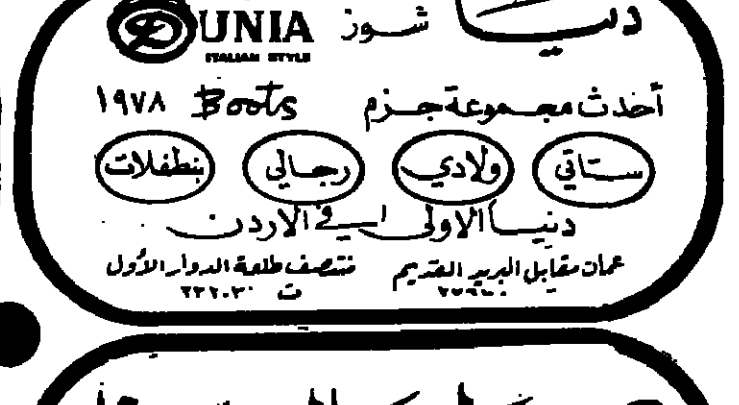 دنيا شوز DUNIA
ITALIAN STYLE
أحدث مجموعة جزم Boots ١٩٧٨
ستاتي ولادي رجالي بنطفلات
دنيا الاولى في الاردن
عمان مقابل البريد القديم منتصف طلعة الدوار الاول
ت